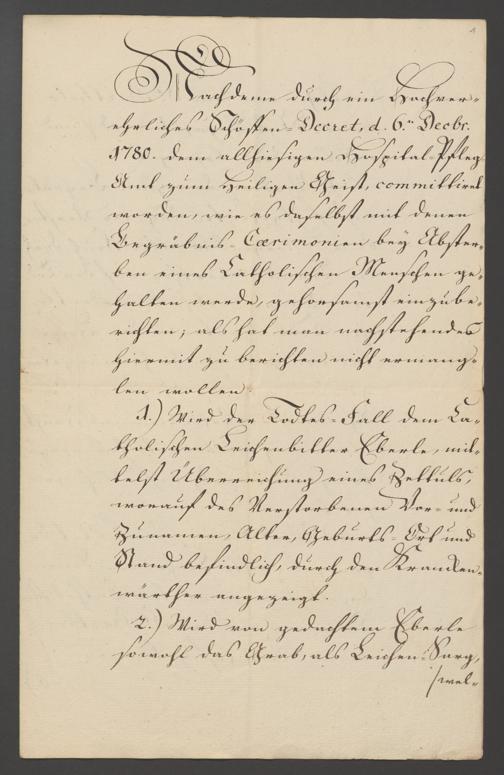 Nachdeme durch ein Hochver-
ehrliches Schöffen-Decret, d. 6.ten Decbr.
1780. dem allhiesigen Hospital-Pfleg-
Amt zum Heiligen Geist, committiret
worden, wie es daselbst mit denen
Begräbnis-Cærimonien bey Abster-
ben eines Catholischen Menschen ge-
halten werde, gehorsamst einzube-
richten; als hat man nachstehendes
hiermit zu berichten nicht ermang-
len wollen.
1.) Wird der Todtes-Fall dem Ca-
tholischen Leichenbitter Eberle, mit-
telst Überreichung eines Zettuls,
worauf des Verstorbenen Vor- und
Zunamen, Alter, Geburts-Ort und
Stand befindlich, durch den Krancken-
wärther angezeigt.
2.) Wird von gedachtem Eberle
sowohl das Grab, als Leichen-Sarg,
/wel-